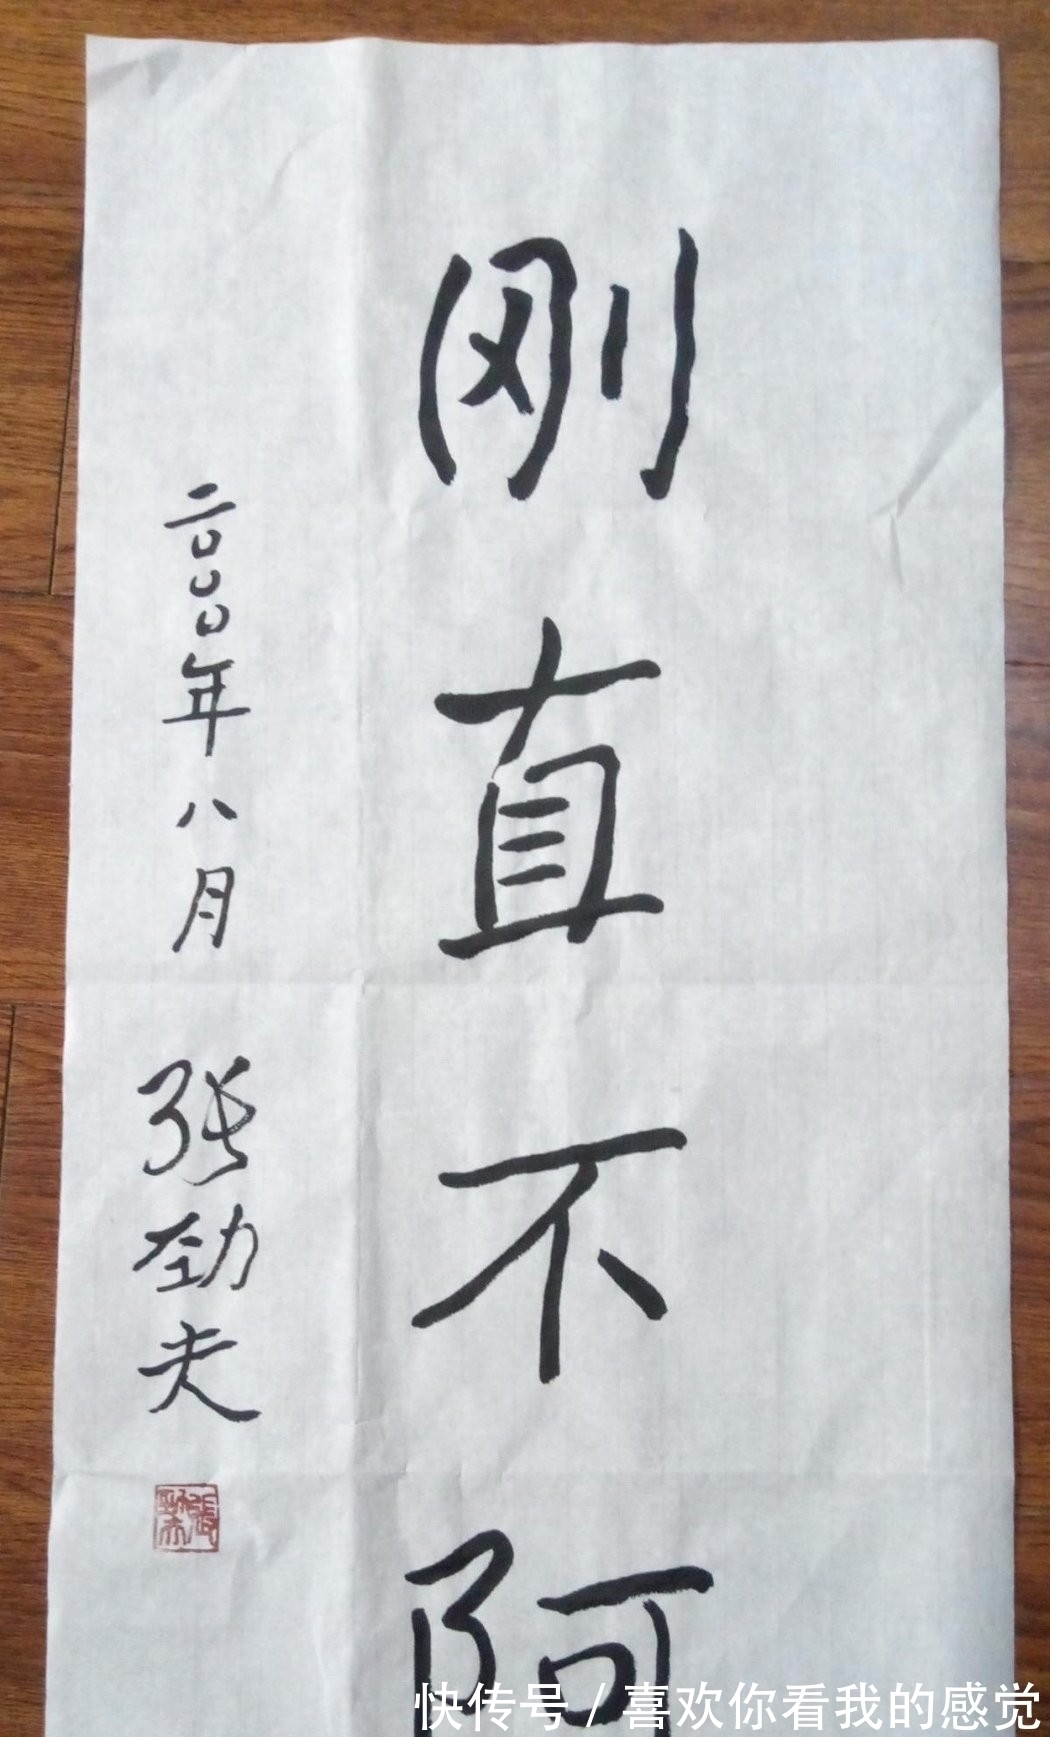 刚直不阿
二〇〇〇年八月
张劲夫
快传号/喜欢你看我的感觉